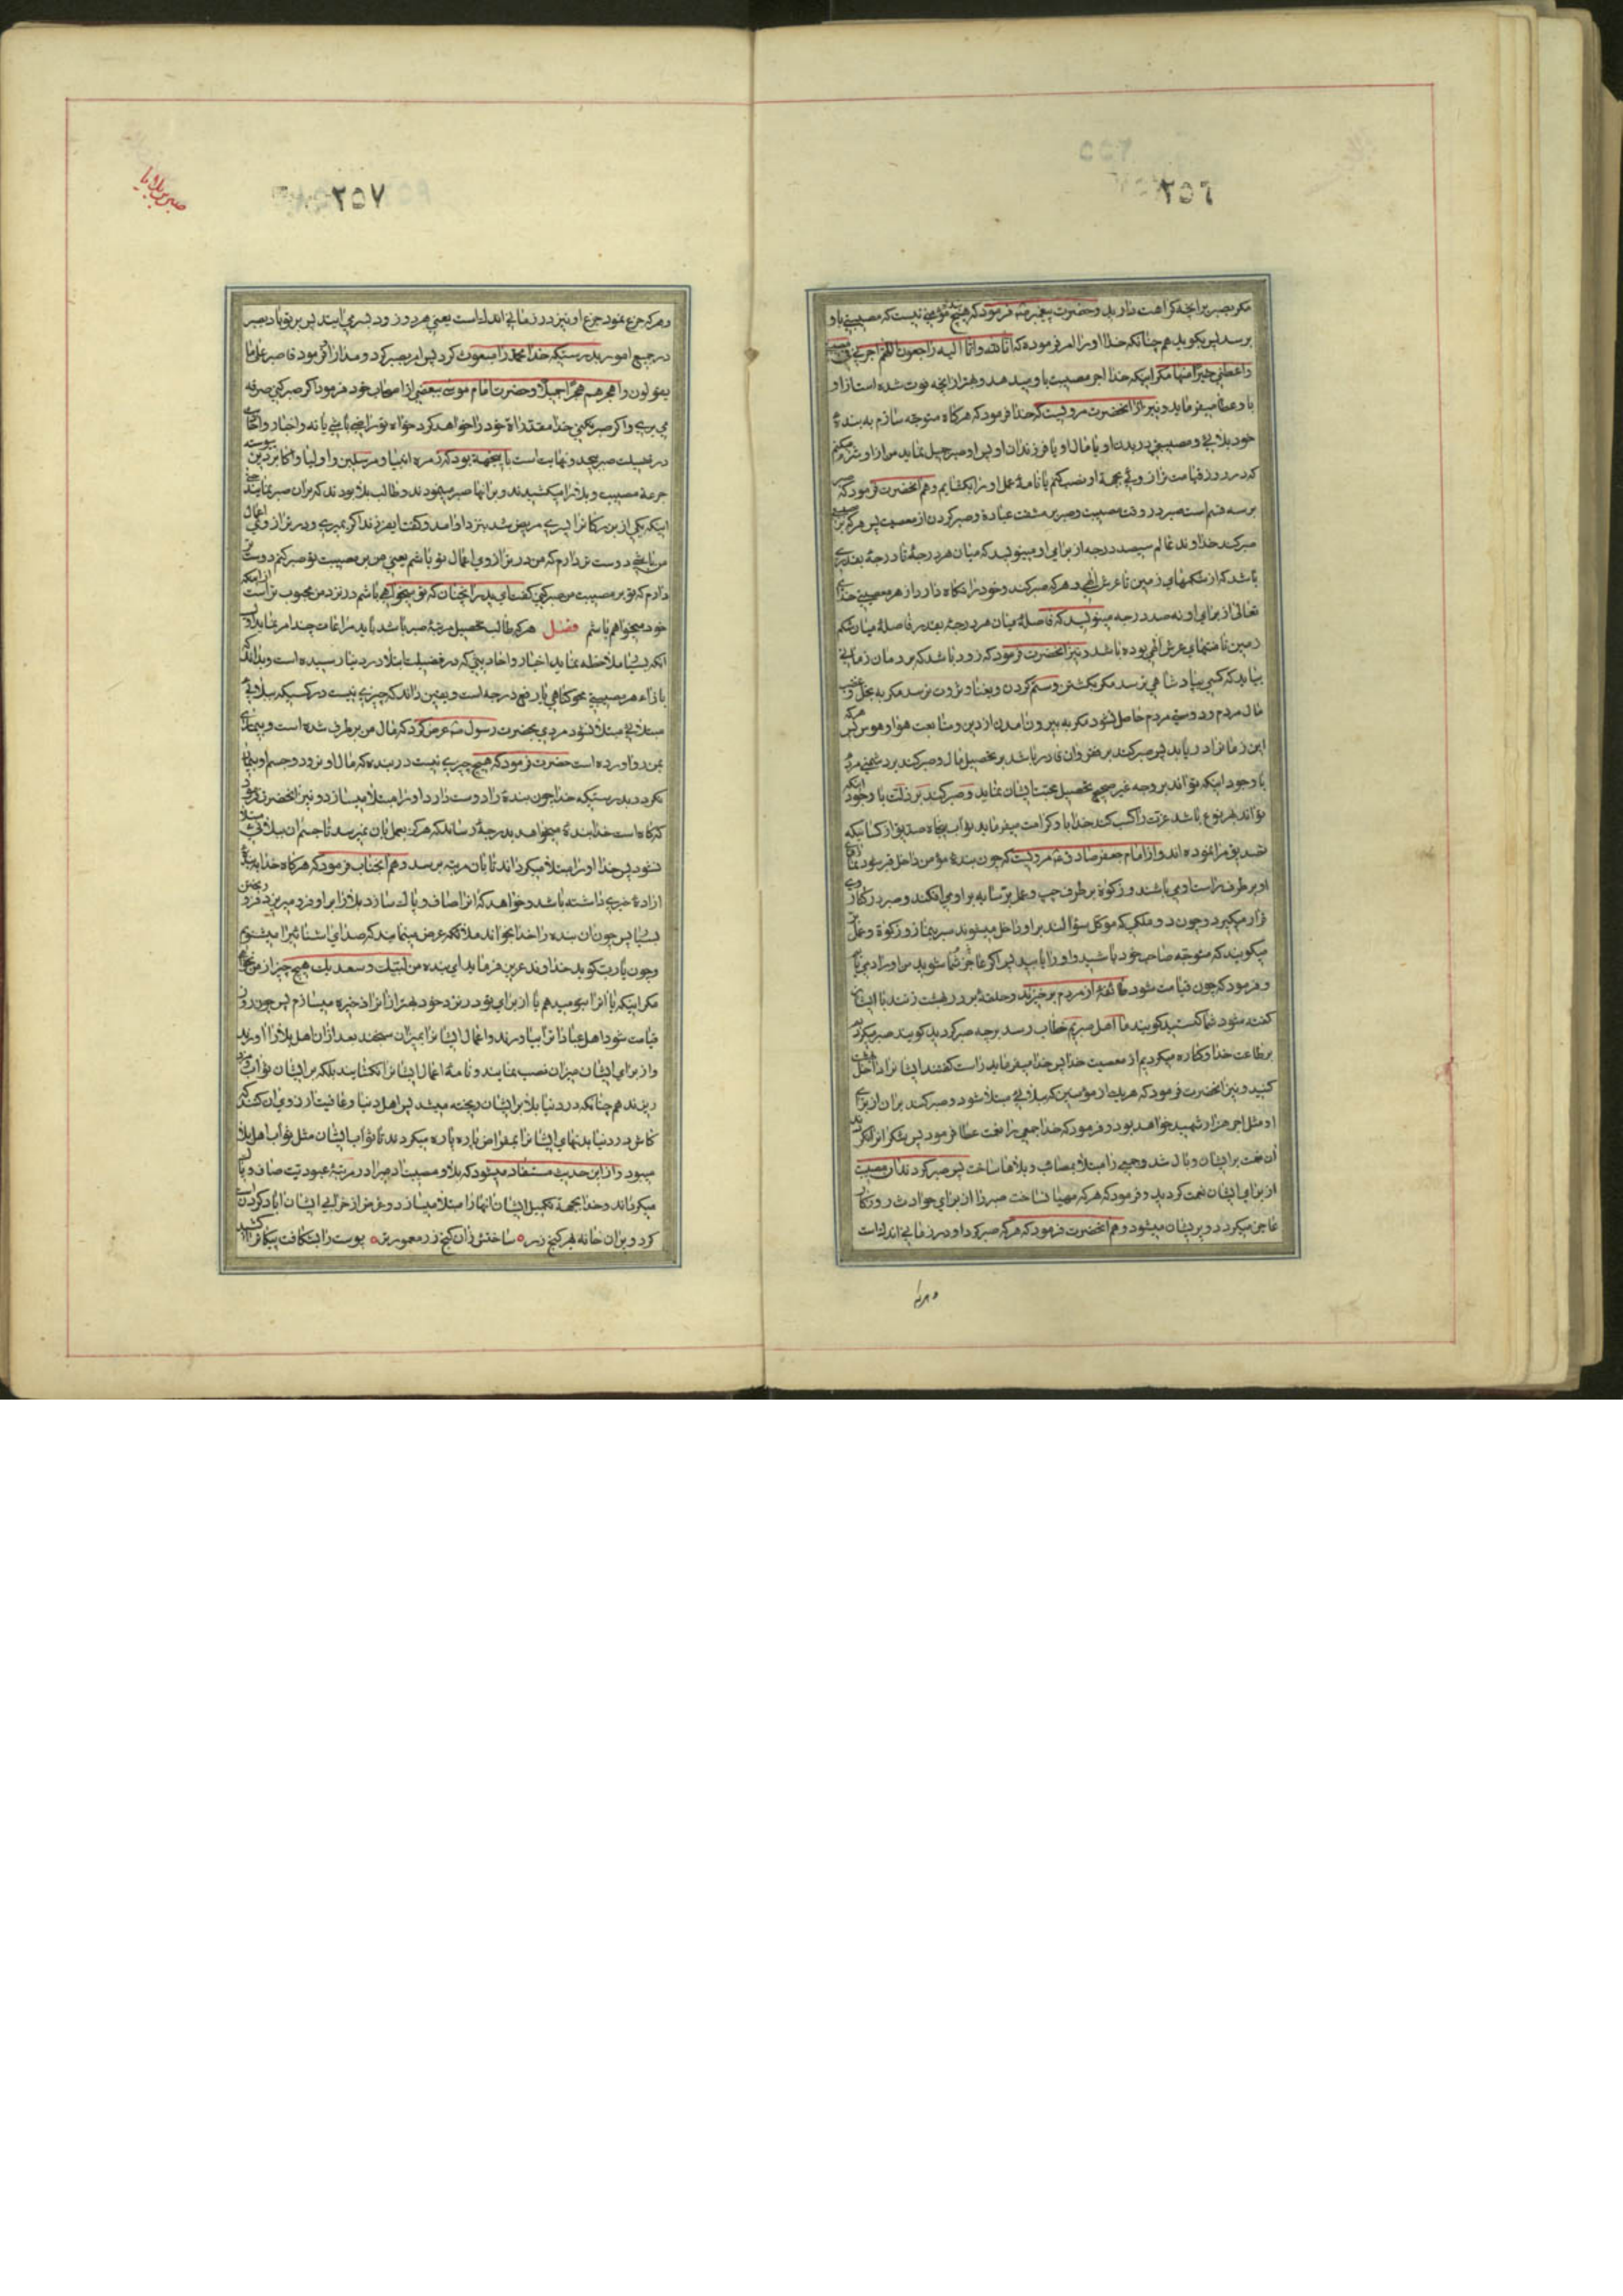 ٢٥٦
مکر بصبر بر انچه کراهت دارید و حضرت پیغمبر ص فرمود که هیچ مؤمنی نیست که مصیبتی باو
برسد پس بکوید هم چنانکه خدا او را امر فرموده که انا لله و انا الیه راجعون اللهم اجرنی فی مصیبتی
و اعطنی خیرا منها مکر اینکه خدا اجر مصیبت باو میدهد و بهتر از انچه فوت شده است از او
باو عطا میفرماید و نیز از انحضرت مرویست که خدا فرمود که هرکاه متوجه سازم به بندهٔ
خود بلائی و مصیبتی در بدن او یا مال او یا فرزندان او پس او صبر جمیل نماید من از او شرم میکنم
که در روز قیامت ترازوئی بجهة او نصب کنم یا نامهٔ عمل او را بکشایم و هم انحضرت فرمود که صبر
بر سه قسم است صبر در وقت مصیبت و صبر بر مشقت عبادة و صبر کردن از معصیت پس هرکه بر مصیبت
صبر کند خداوند عالم سیصد درجه از برای او مینویسد که میان هر درجهٔ تا درجهٔ بقدری
باشد که از شکمهای زمین تا عرش الهی و هرکه صبر کند و خود را نکاه دارد از هر معصیتی خدای
تعالی از برای او نه صد درجه مینویسد که فاصلهٔ میان هر درجهٔ بقدر فاصلهٔ میان شکم
زمین تا منتهای عرش الهی بوده باشد و نیز انحضرت فرمود که زود باشد که بر مردمان زمانی
بیاید که کسی بپادشاهی نرسد مکر بکشتن و ستم کردن و بغنا و ثروت نرسد مکر به بخل و غصب
مال مردم و دوستی مردم حاصل نشود مکر به بیرون امدن از دین و متابعت هوا و هوس پس هرکه
این زمان را دریابد پس صبر کند بر فقر و ان قادر باشد بر تحصیل مال و صبر کند بر دشمنی مردم
با وجود اینکه تواند بر وجه غیر صحیح تحصیل محبت ایشان نماید و صبر کند بر ذلت با وجود اینکه
تواند بهر نوع باشد عزت را کسب کند خدا باو کرامت میفرماید ثواب پنجاه صدیق از کسانیکه
تصدیق مرا نموده اند و از امام جعفر صادق ع مرویست که چون بندهٔ مؤمن داخل قبر شود نماز
او بر طرف راست او می باشند و زکوة بر طرف چپ و عمل بر سایه بر او می افکند و صبر در کناری
قرار میکیرد و چون دو ملکی که موکل سؤالند بر او داخل میشوند صبر بنماز و زکوة و عمل بر
میکوید که متوجه صاحب خود باشید و او را بپایید پس اکر عاجز شما شوید من او را دریابم
و فرمود که چون قیامت شود طائفهٔ از مردم برخیزند و حلقهٔ بر در بهشت زنند با ایشان
کفته شود شما کیستید کویند ما اهل صبریم خطاب رسد بر چه صبر کردید کویند صبر میکردیم
بر طاعت خدا و کناره میکردیم از معصیت خدا پس خدا میفرماید راست کفتند ایشان را داخل بهشت
کنید و نیز انحضرت فرمود که هریک از مؤمنین که ببلائی مبتلا شود و صبر کند بر ان از برای
او مثل اجر هزار شهید خواهد بود و فرمود که خدا جمعی را نعمت عطا فرمود پس شکر انرا نکردند
ان نعمت بر ایشان وبال شد و جمعی را مبتلا بمصائب و بلاها ساخت پس صبر کردند ان مصیبت
از برای ایشان نعمت کردید و فرمود که هرکه مهیا نساخت صبر را از برای حوادث روزکار
عاجز میکردد و پریشان میشود و هم انحضرت فرمود که هرکه صبر کرد او در زمانی اندکست
و هرکه
٢٥٧
صبر بر بلایا
و هرکه جزع نمود جزع او نیز در زمانی اندک است یعنی هر دو زود بسر می ایند پس بر تو باد بصبر
در جمیع امور بدرستیکه خدا محمد را مبعوث کرد پس امر بصبر کرد و مدارا فرمود فاصبر علی ما
یقولون و اهجرهم هجرا جمیلا و حضرت امام موسی ببعضی از اصحاب خود فرمود اکر صبر کنی صرفه
می بری و اکر صبر نکنی خدا مقدراة خود را خواهد کرد خواه تو راضی باشی یا نه و اخبار و اثار
در فضیلت صبر بیحد و نهایت است باینجهة بود که زمره انبیا و مرسلین و اولیا و اکابر دین پیوسته
جرعهٔ مصیبت و بلا را میکشیدند و بر انها صبر مینمودند و طالب بلا بودند که بر ان صبر نمایند حتی
اینکه یکی از بزرکان را پسری مریض شد بنزد او امد و کفت ایفرزند اکر بمیری و در ترازوی اعمال
من باشی دوست تر دارم که من در ترازوی اعمال تو باشم یعنی من بر مصیبت تو صبر کنم دوست تر
دارم که تو بر مصیبت من صبر کنی کفت ای پدر انچنان که تو میخواهی باشم در نزد من محبوب تر است از اینکه
خود میخواهم باشم فصل هرکه طالب تحصیل مرتبهٔ صبر باشد باید مراعات چند امر نماید اول
انکه بسیار ملاحظه نماید اخبار و احادیثی که در فضیلت ابتلا در دنیا رسیده است و بداند که
بازاء هر مصیبتی محو کناهی یا رفع درجه است و یقین داند که چیزی نیست در کسیکه ببلائی
مبتلا نشود مردی بحضرت رسول ص عرض کرد که مال من برطرف شده است و بیماری
بمن رو اورده است حضرت فرمود که هیچ چیزی نیست در بنده که مال او نرود و جسم او بیمار
نکردد بدرستیکه خدا چون بندهٔ را دوست دارد او را مبتلا میسازد و نیز انحضرت فرمود
که کاه است خدا بندهٔ میخواهد بدرجهٔ رساند که هرکز بعمل بان نمیرسد تا جسم ان ببلائی مبتلا
نشود پس خدا او را مبتلا میکرداند تا بان مرتبه برسد و هم انجناب فرمود که هرکاه خدا به بندهٔ
ارادهٔ خیری داشته باشد و خواهد که انرا صاف و پاک سازد بلا را بر او فرو میریزد فرو ریختن
بسیار پس چون ان بنده خدا را بخواند ملائکه عرض مینمایند که صدای اشنائیرا میشنویم
و چون یا رب کوید خداوند عزیز فرماید ای بنده من لبیک و سعدیک هیچ چیز از من نخواهی
مکر اینکه یا انرا بتو میدهم یا از برای تو در نزد خود بهتر از انرا ذخیره میسازم پس چون روز
قیامت شود اهل عبادات را بیاورند و اعمال ایشان را بمیزان سنجند بعد از ان اهل بلا را اورند
و از برای ایشان میزان نصب ننمایند و نامهٔ اعمال ایشان را نکشایند بلکه بر ایشان ثواب فرو
ریزند هم چنانکه در دنیا بلا بر ایشان ریخته میشد پس اهل دنیا و عافیت ارزوی ان کنند که
کاش در دنیا بدنهای ایشان را بمقراض پاره پاره میکردند تا ثواب ایشان مثل ثواب اهل بلا
میبود و از این حدیث مستفاد میشود که بلا و مصیبت ادمی را در مرتبهٔ عبودیت صاف و پاک
میکرداند و خدا بجهة تکمیل ایشان انها را مبتلا میسازد و غرض از خرابی ایشان اباد کردن است
کرد ویران خانه بهر کنج زر ٥ ساختش زان کنج زر معمورتر ٥ پوست را بشکافت پیکان را کشید